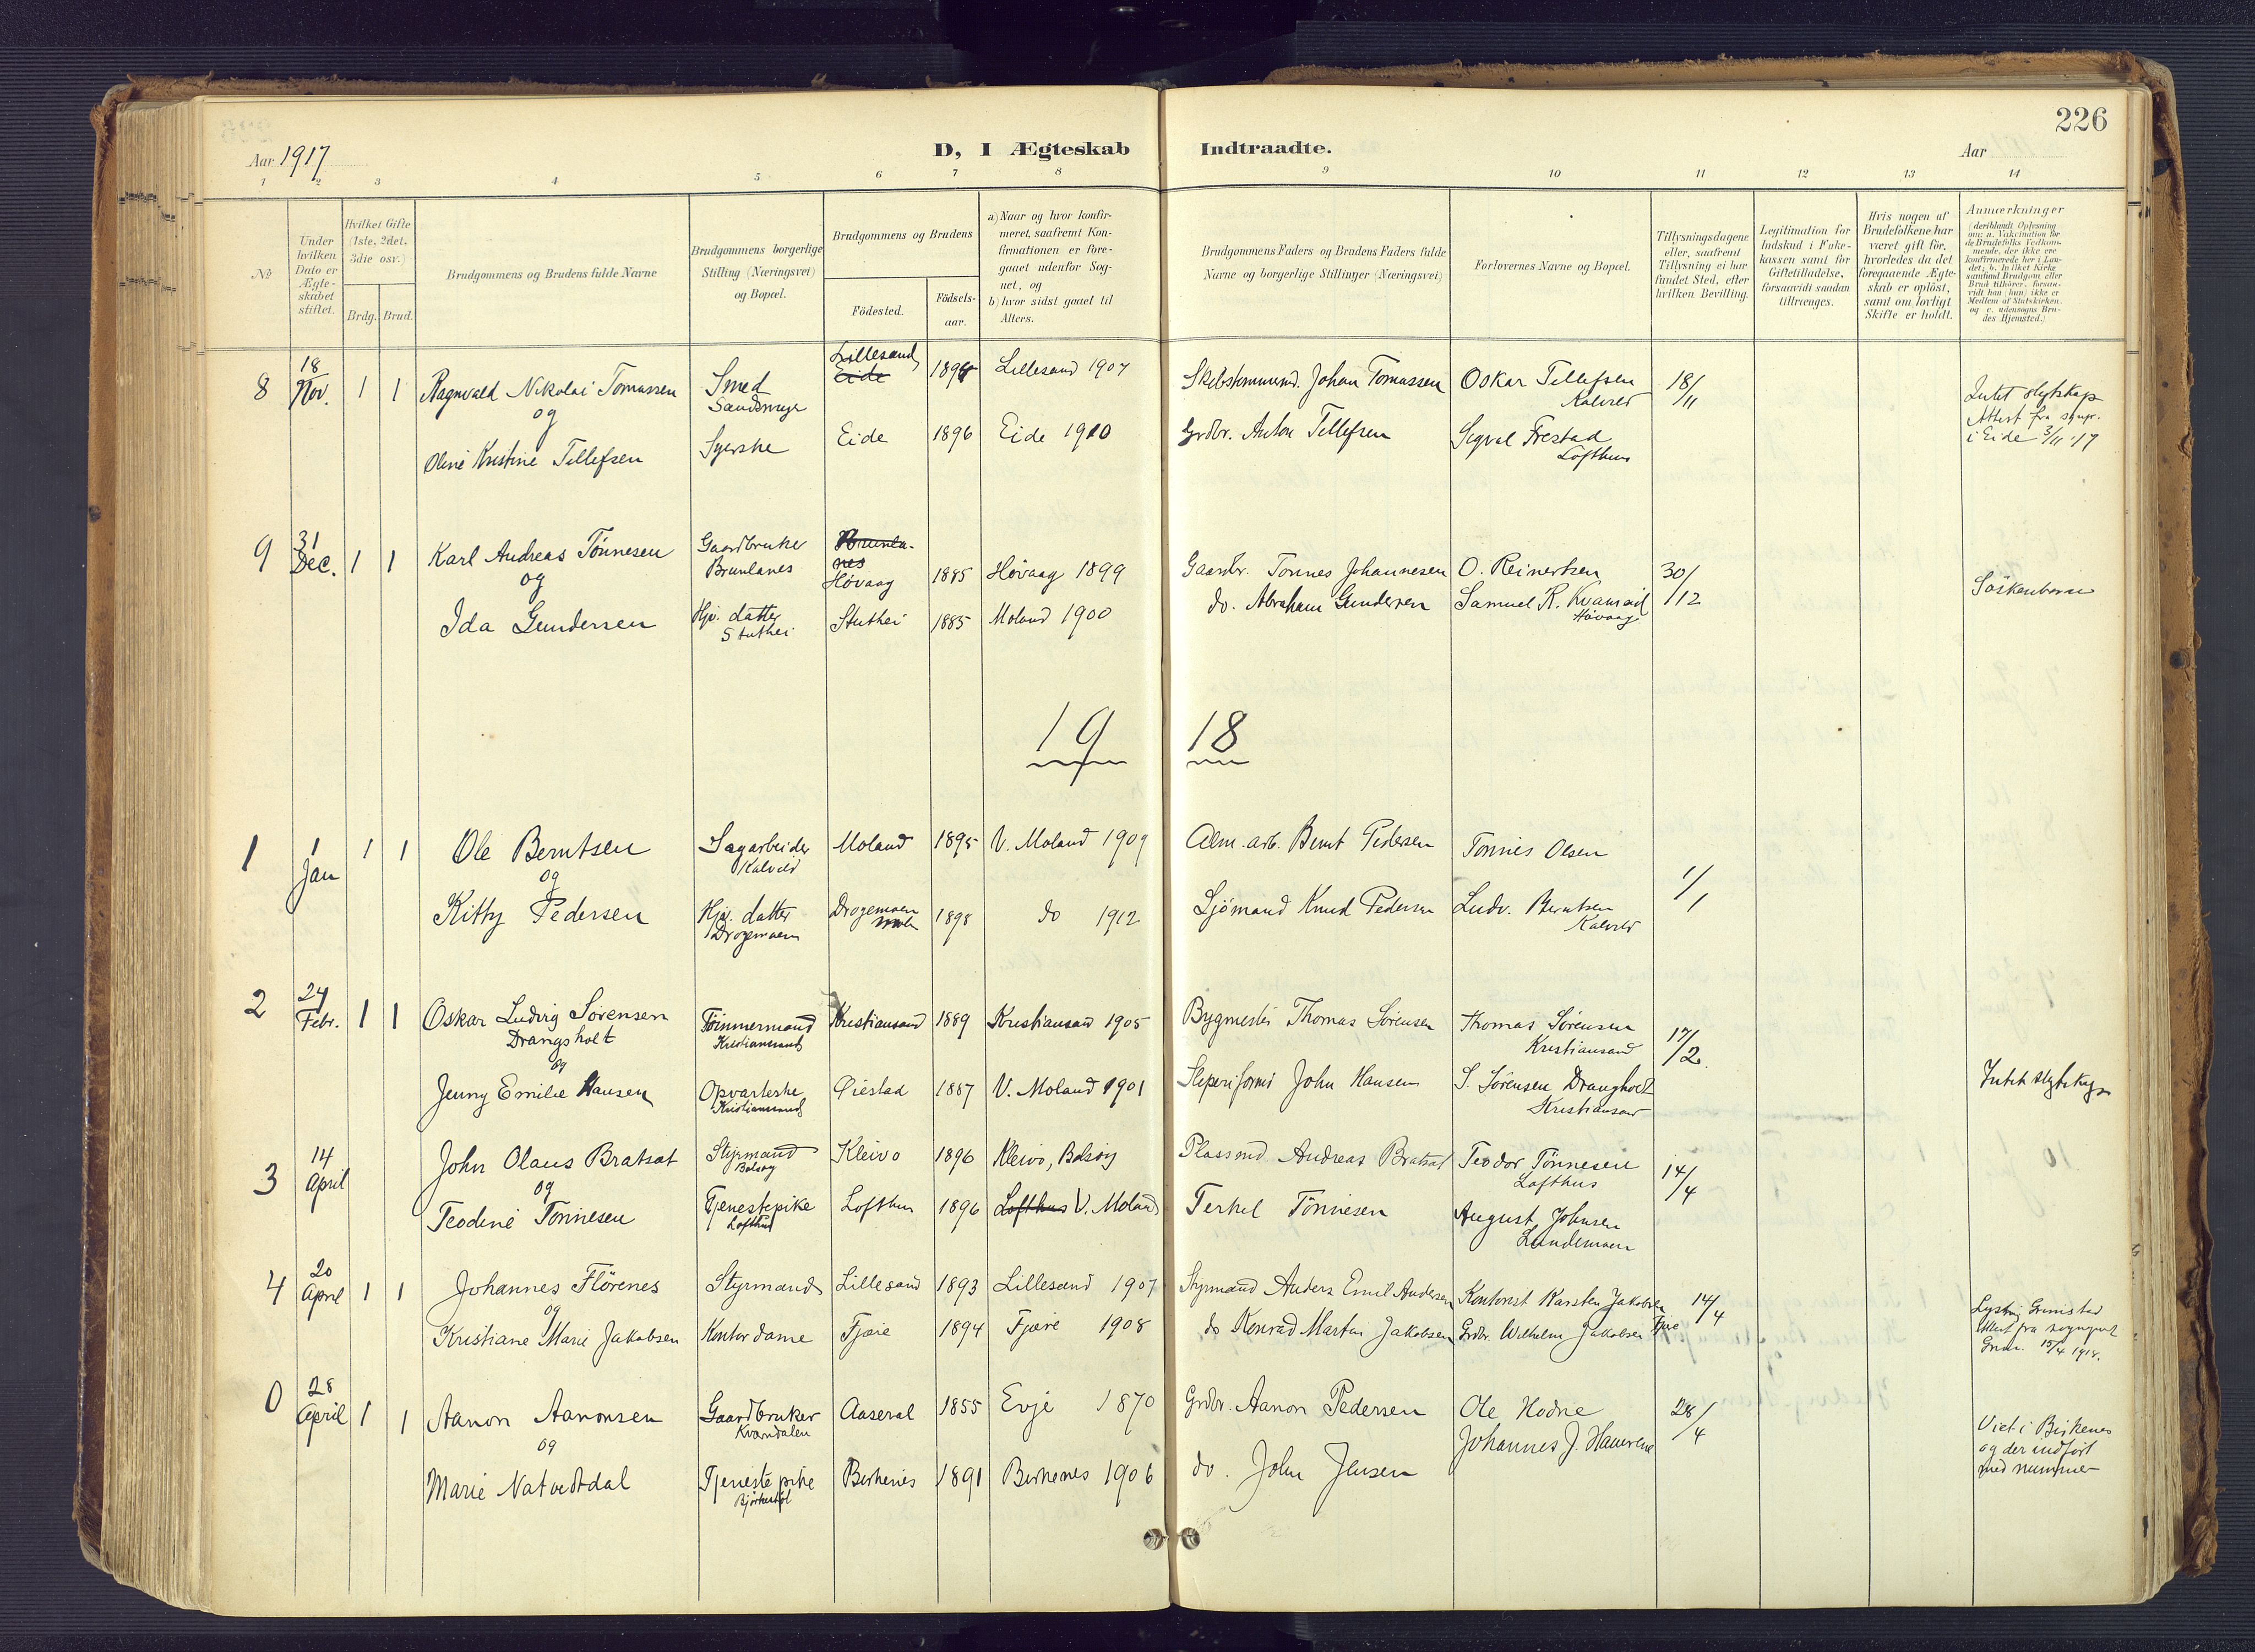 226
Aar 1917
D, I Ægteskab Indtraadte.
Aar
1 2 3 4 5 6 7 8 9 10 11 12 13 14
№
Under hvilken Dato er Ægteskabet stiftet.
Hvilket Gifte (1ste, 2det, 3die osv.)
Brdg. Brud.
Brudgommens og Brudens fulde Navne
Brudgommens borgerlige Stilling (Næringsvei) og Bopæl.
Brudgommens og Brudens
Fødested.
Fødselsaar.
a) Naar og hvor konfirmeret, saafremt Konfirmationen er foregaaet udenfor Sognet, og
b) hvor sidst gaaet til Alters.
Brudgommens Faders og Brudens Faders fulde Navne og borgerlige Stillinger (Næringsvei)
Forlovernes Navne og Bopæl.
Tillysningsdagene eller, saafremt Tillysning ei har fundet Sted, efter hvilken Bevilling.
Legitimation for Indskud i Enkekassen samt for Giftetilladelse, forsaavidt saadan tiltrænges.
Hvis nogen af Brudefolkene har været gift før, hvorledes da det foregaaende Ægteskab er opløst, samt om lovligt Skifte er holdt.
Anmærkninger
(deriblandt Oplysning om: a. Vakcination for de Brudefolks Vedkommende, der ikke ere konfirmerede her i Landet; b. hvilket Kirkesamfund Brudgom eller Brud tilhører, forsaavidt han (hun) ikke er Medlem af Statskirken, og c. udensogns Brudes Hjemsted.)
8 18 Nov. 1 1 Ragnvald Nikolai Tomassen Smed Lillesand Eide 1894 Lillesand 1907 Johan Tomassen Oskar Tellefsen Kalvild 18/11
og
Oline Kristine Tellefsen Syerske Eide 1896 Eide 1910 Grdbr. Anton Tellefsen Sigval Frestad Lofthus
Intet slegtskap
Attest fra sgnpr.
i Eide 3/11 '17
9 31 Dec. 1 1 Karl Andreas Tønnesen Gaardbruker Brunlanes Brunlanes Høvaag 1885 Høvaag 1899 Gaardbr. Tønnes Johannesen O. Reinertsen 30/12
og
Ida Gundersen Hjv. datter Stuthei Stuthei 1885 Moland 1900 do. Abraham Gundersen Samuel R. Høvaag
Søskenbarn
1918
1 1 Jan 1 1 Ole Berntsen Sagarbeider Kalvild Moland 1895 V. Moland 1909 Alm. arb. Bernt Pedersen Tønnes Olsen 1/1
og
Kitty Pedersen Hjv. datter Drogemoen Drogemoen 1898 do 1912 Sjømand Knud Pedersen Ludv. Berntsen Kalvild
2 24 Febr. 1 1 Oskar Ludvig Sørensen Drangsholt Tømmermand Kristiansand Kristiansand 1889 Kristiansand 1905 Bygmester Thomas Sørensen Thomas Sørensen Kristiansand 17/2.
og
Jenny Emilie Hansen Opvarterske Kristiansand Øiestad 1887 V. Moland 1901 John Hansen S. Sørensen Drangholt Kristiansand
Intet slegtskap
3 14 April John Olaus Bratsat Styrmand Bolsøy Kleivo 1896 Kleivo, Bolsøy Plassmd Andreas Bratsat Teodor Tønnesen Lofthus 14/4
og
Teodine Tønnesen Tjenestepike Lofthus Lofthus 1896 Lofthus V. Moland Terkel Tønnesen August Johnsen Lundemoen
4 20 April 1 1 Johannes Flørenes Styrmand Lillesand 1893 Lillesand 1907 Styrmand Anders Emil Andersen Kontorist Karsten Jakobsen 14/4
og
Kristiane Marie Jakobsen Kontordame Fjære 1894 Fjære 1908 do Konrad Martin Jakobsen Grdbr. Wilhelm Jakobsen Fjære
Lysning Grimstad
Attest fra sogneprest
15/4 1918.
0 28 April 1 1 Aanon Aanonsen Gaardbruker Kvarndalen Aaseral 1855 Evje 1870 Grdbr. Aanon Pedersen Ole Hodne 28/4
og
Marie Natvedtdal Tjenestepike Birkenes 1891 Birkenes 1906 do. John Jensen Johannes J.
Viet i Birkenes
og der indført
med nummer